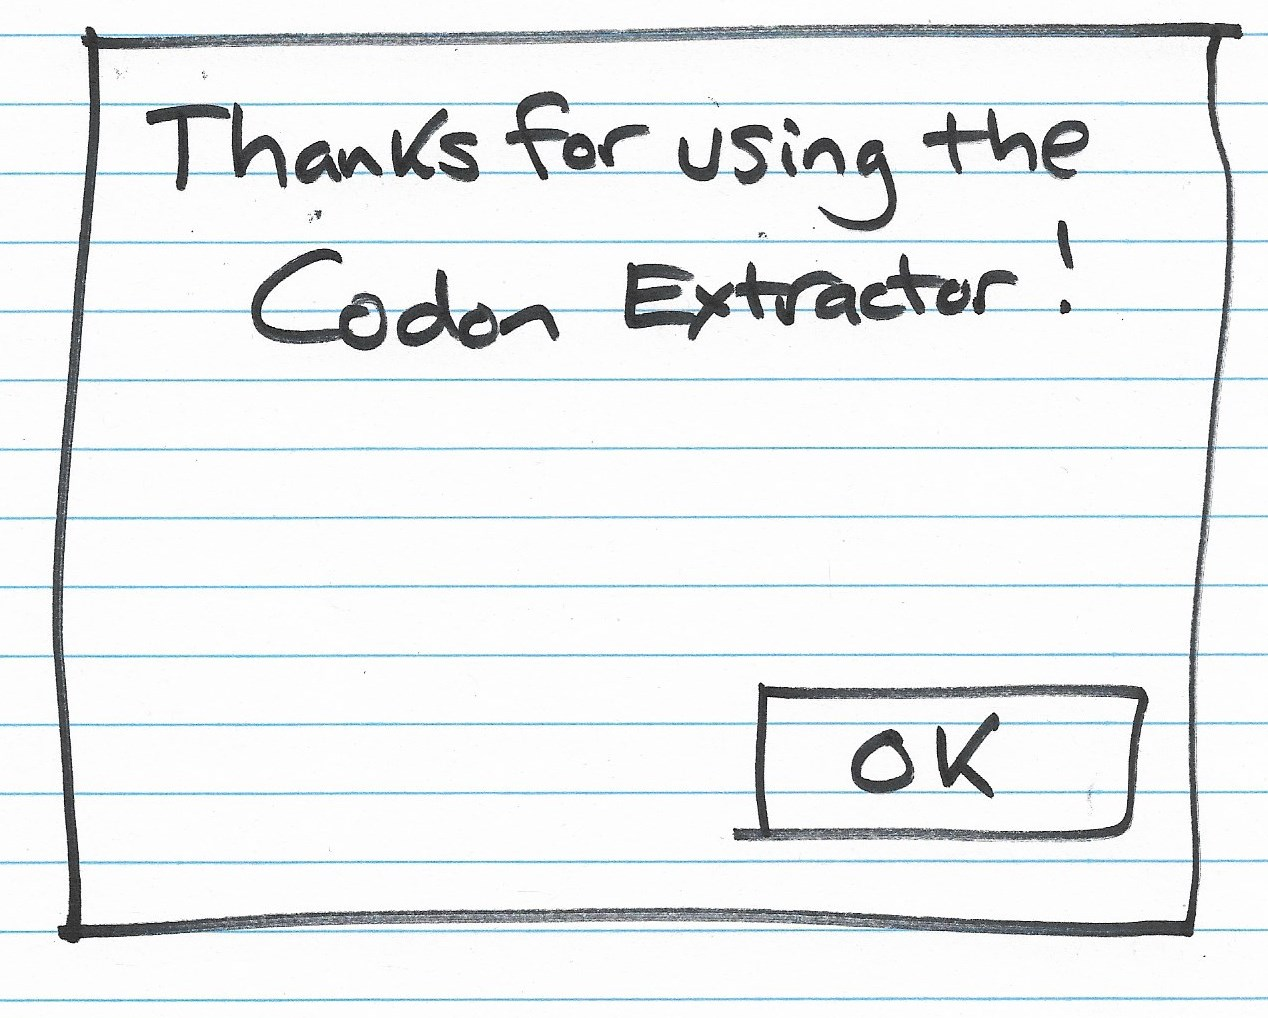 Thanks for using the
Codon Extractor!
OK